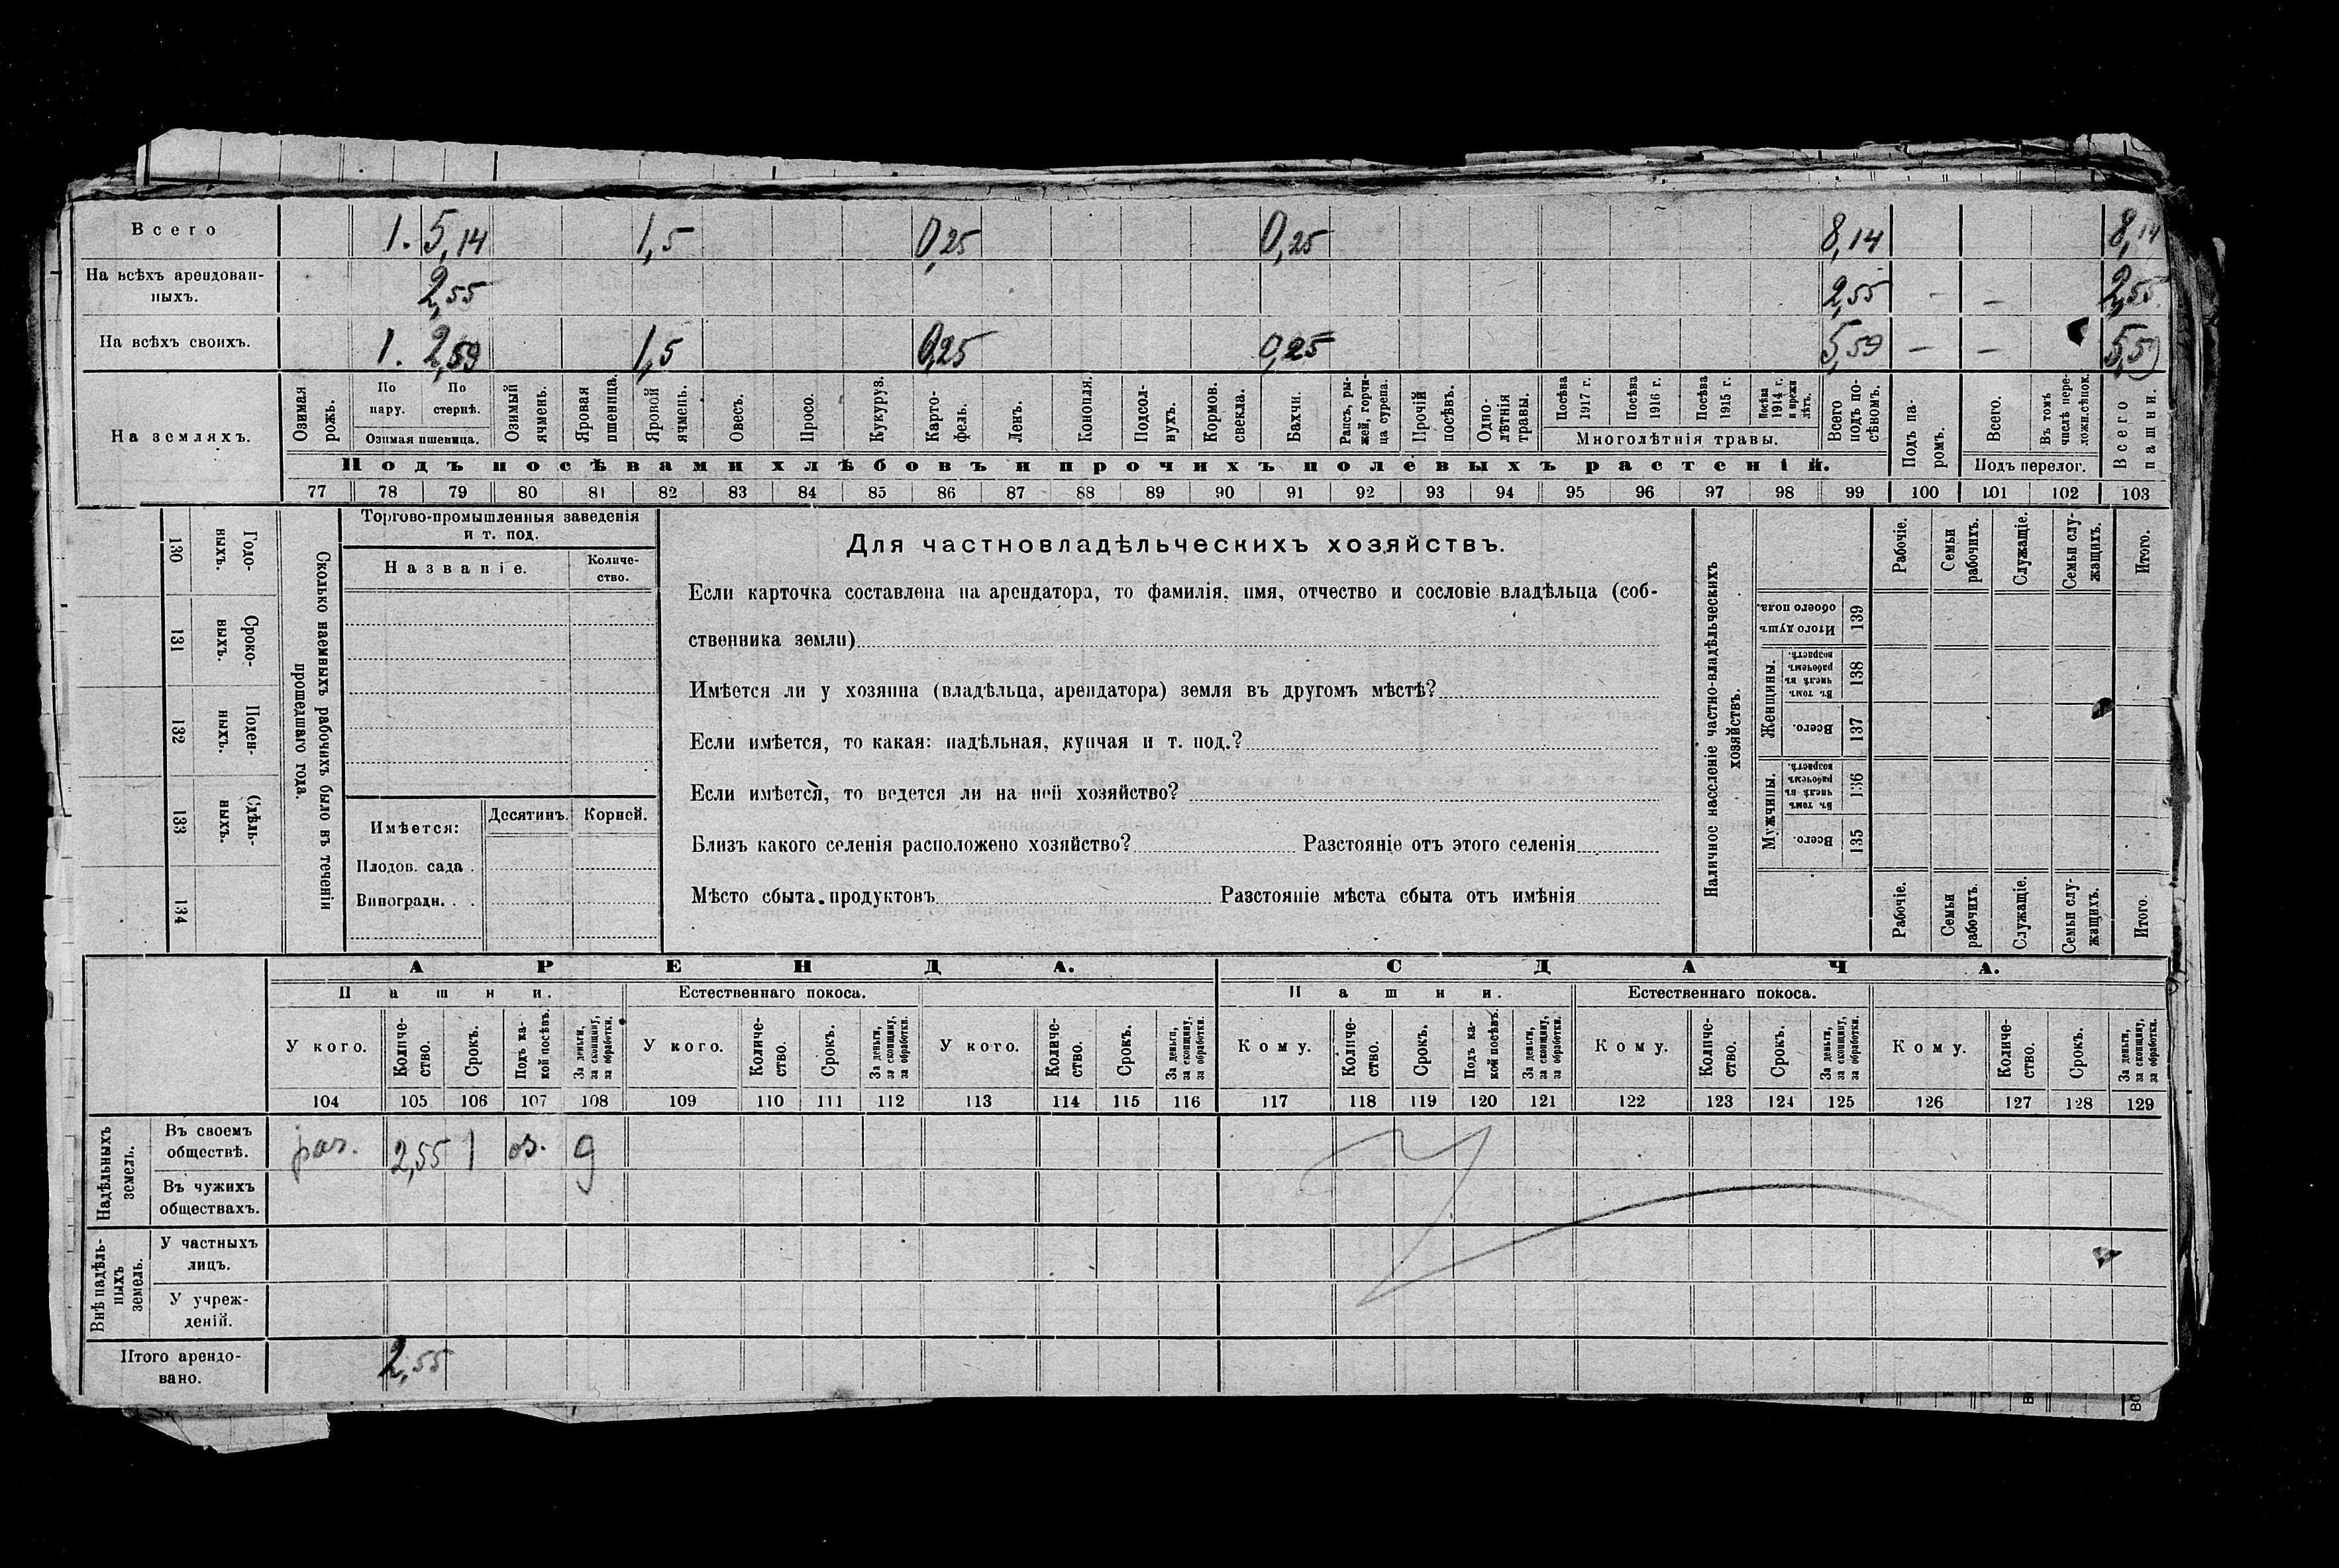 Всего 1. 5,14 1,5 0,25 0,25 8,14 8,14
На всѣхъ арендован-
ныхъ. 2,55 2,55 - - 2,55
На всѣхъ своихъ. 1. 2,59 1,5 0,25 0,25 5,59 — — 5,59
На земляхъ.
Озимая рожь.
По пару.
По стернѣ.
Озимая пшеница.
Озимый ячмень.
Яровая пшеница.
Яровой ячмень.
Овесъ.
Просо.
Кукуруз.
Карто-
фель.
Ленъ.
Конопля.
Подсол-
нухъ.
Кормов. свекла.
Бахчи.
Рапсъ, ры-
жей, горчи-
ца сурепа.
Прочій посѣвъ.
Одно-
лѣтнія травы.
Посѣва 1917 г.
Посѣва 1916 г.
Посѣва 1915 г.
Посѣва 1914 г. и прежн лѣтъ.
Многолѣтнія травы.
Всего подъ по-
сѣвомъ.
Подъ па-
ромъ.
Всего.
Въ томъ числѣ пере-
ложн.сѣнок.
Подъ перелог.
Всего пашни.
Подъ посѣвами хлѣбовъ и прочихъ полевыхъ растеній.
77 78 79 80 81 82 83 84 85 86 87 88 89 90 91 92 93 94 95 96 97 98 99 100 101 102 103
130 Годо-
ныхъ.
131 Сроко-
ныхъ.
132 Поден-
ныхъ.
133 Сдѣль-
ныхъ.
134
Сколько наемныхъ рабочихъ было въ теченіи
прошедшаго года.
Торгово-промышленныя заведенія
и т. под.
Названіе.
Количе-
ство.
Имѣется: Десятинъ. Корней.
Плодов. сада .
Виноградн. . .
Для частновладѣльческихъ хозяйствъ.
Если карточка составлена на арендатора, то фамилія, имя, отчество и сословіе владѣльца (соб-
ственника земли)
Имѣется ли у хозяина (владѣльца, арендатора) земля въ другомъ мѣстѣ?
Если имѣется, то какая: надѣльная, купчая и т. под.?
Если имѣется, то ведется ли на ней хозяйство?
Близъ какого селенія расположено хозяйство? Разстояніе отъ этого селенія
Мѣсто сбыта продуктовъ Разстояніе мѣста сбыта отъ имѣнія
Наличное населеніе частно-владѣльческихъ
хозяйствъ.
Рабочіе.
Семьи рабочихъ.
Служащіе.
Семьи слу-
жащихъ.
Итого.
Итого душъ обоего пола. 139
Женщины.
Въ томъ числѣ въ рабочемъ возрастѣ. 138
Всего. 137
Мужчины.
Въ томъ числѣ въ рабочемъ возрастѣ. 136
Всего. 135
Рабочіе.
Семьи рабочихъ.
Служащіе.
Семьи слу-
жащихъ.
Итого.
АРЕНДА. СДАЧА.
Пашни. Естественнаго покоса. Пашни. Естественнаго покоса.
У кого.
Количе-
ство.
Срокъ.
Подъ ка-
кой посѣвъ.
За деньги, за скопщину, за обработки.
У кого.
Количе-
ство.
Срокъ.
За деньги, за скопщину, за обработки.
У кого.
Количе-
ство.
Срокъ.
За деньги, за скопщину, за обработки.
Кому.
Количе-
ство.
Срокъ.
Подъ ка-
кой посѣвъ.
За деньги, за скопщину, за обработки.
Кому.
Количе-
ство.
Срокъ.
За деньги, за скопщину, за обработки.
Кому.
Количе-
ство.
Срокъ.
За деньги, за скопщину, за обработки.
104 105 106 107 108 109 110 111 112 113 114 115 116 117 118 119 120 121 122 123 124 125 126 127 128 129
Надѣльныхъ
земель.
Въ своемъ
обществѣ. раз. 2,55 1 оз. д
Въ чужихъ
обществахъ.
Внѣ надѣль-
ныхъ
земель.
У частныхъ
лицъ.
У учреж-
деній.
Итого арендо-
вано. 2,55